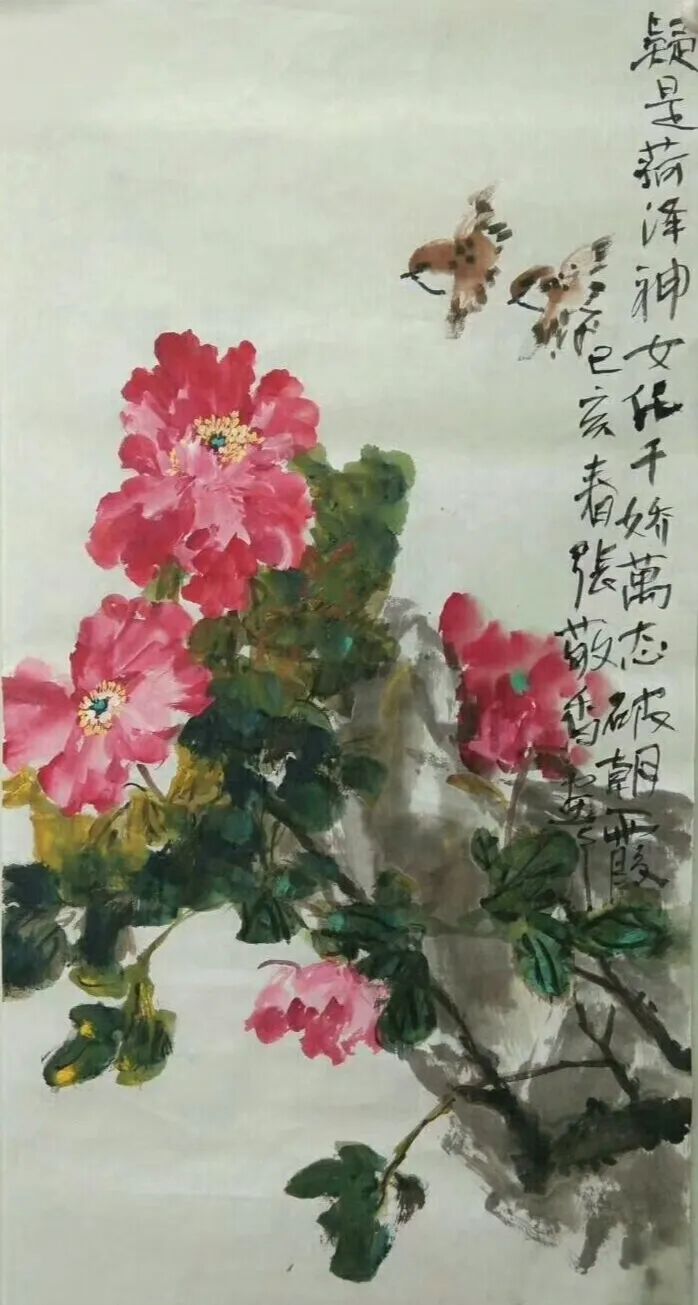 疑是荷泽神女化千娇萬态破朝霞
己亥春張敬香画